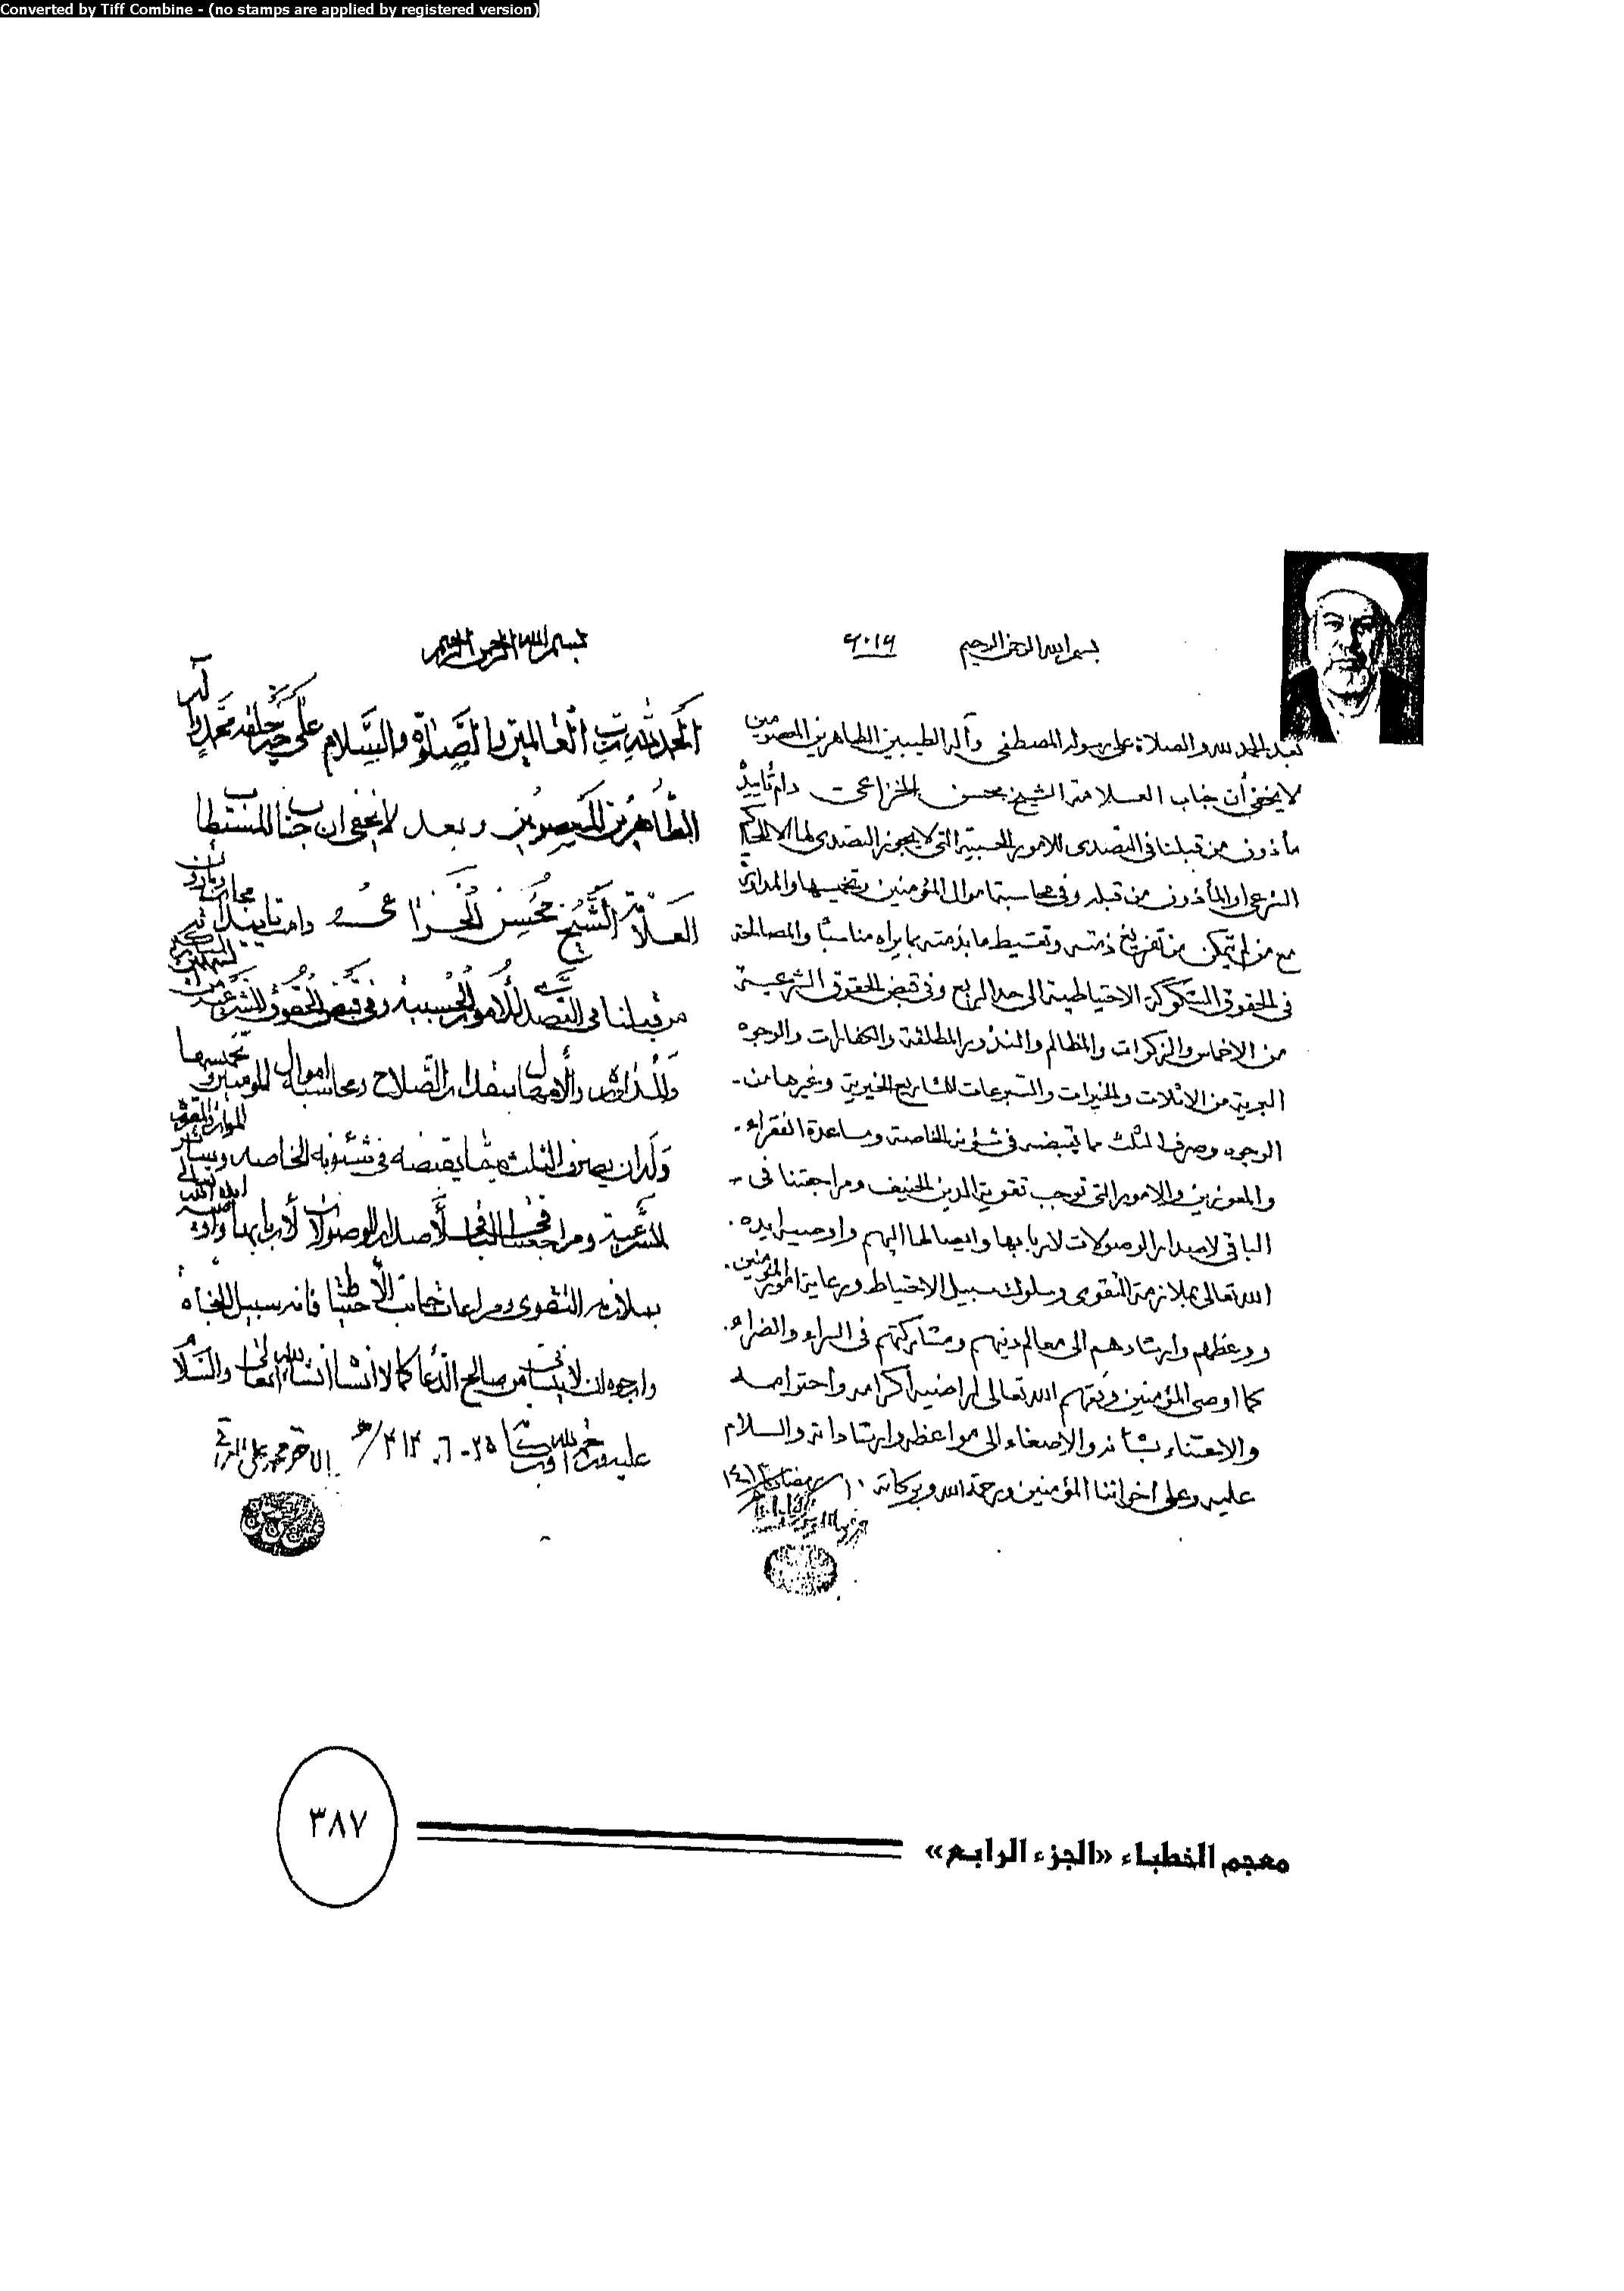 Converted by Tiff Combine - (no stamps are applied by registered version)
بسم الله الرحمن الرحيم ٦٠١٦
بعد الحمد لله والصلاة على رسوله المصطفى وآله الطيبين الطاهرين المعصومين
لا يخفى أن جناب العلامة الشيخ محسن الخزاعي دام تأييده
مأذون من قبلنا في التصدي للامور الحسبية التي لا يجوز التصدي لها الا للحاكم
الشرعي او المأذون من قبله وفي محاسبة اموال المؤمنين وتخميسها والمداورة
مع من لم يتمكن من تفريغ ذمته وتقسيط ما بذمته بما يراه مناسباً والمصالحة
في الحقوق المشكوكة الاحتياطية الى حد الربع وفي قبض الحقوق الشرعية
من الاخماس والزكوات والمظالم والنذور المطلقة والكفارات والوجوه
البرية من الاثلاث والخيرات والتبرعات للمشاريع الخيرية وغيرها من
الوجوه وصرف الثلث مما يقبضه في شؤونه الخاصة ومساعدة الفقراء
والمعوزين والامور التي توجب تقوية الدين الحنيف ومراجعتنا في
الباقي لاصدار الوصولات لاربابها وايصالها اليهم واوصيه ايده
الله تعالى بملازمة التقوى وسلوك سبيل الاحتياط ورعاية امور المؤمنين
ووعظهم وارشادهم الى معالم دينهم ومشاركتهم في السراء والضراء
كما اوصي المؤمنين وفقهم الله تعالى لمراضيه اكرامه واحترامه
والاعتناء بشأنه والاصغاء الى مواعظه وارشاداته والسلام
عليه وعلى اخواننا المؤمنين ورحمة الله وبركاته ١٠ رمضان ١٤١٣
بسم الله الرحمن الرحيم
الحمد لله رب العالمين والصلوة والسلام على خير خلقه محمد وآله
الطاهرين المعصومين وبعد لا يخفى ان جناب المستطاب
العلامة الشيخ محسن الخزاعي دامت تاييداته
من قبلنا في التصدي للامور الحسبية وفي قبض الحقوق الشرعية
ومحاسبة اموال المؤمنين وتخميسها
وله ان يصرف الثلث فيما يقبضه في شئونه الخاصه
الشرعية ومراجعتنا في الباقي لأصدار الوصولات لأربابها
بملازمة التقوى ومراعات جانب الأحتياط فانه سبيل النجاة
وارجوه ان لا ينساني من صالح الدعا كما لا انساه انشاء الله تعالى والسلام
عليه ورحمة الله وبركاته
معجم الخطباء «الجزء الرابع»
٣٨٧